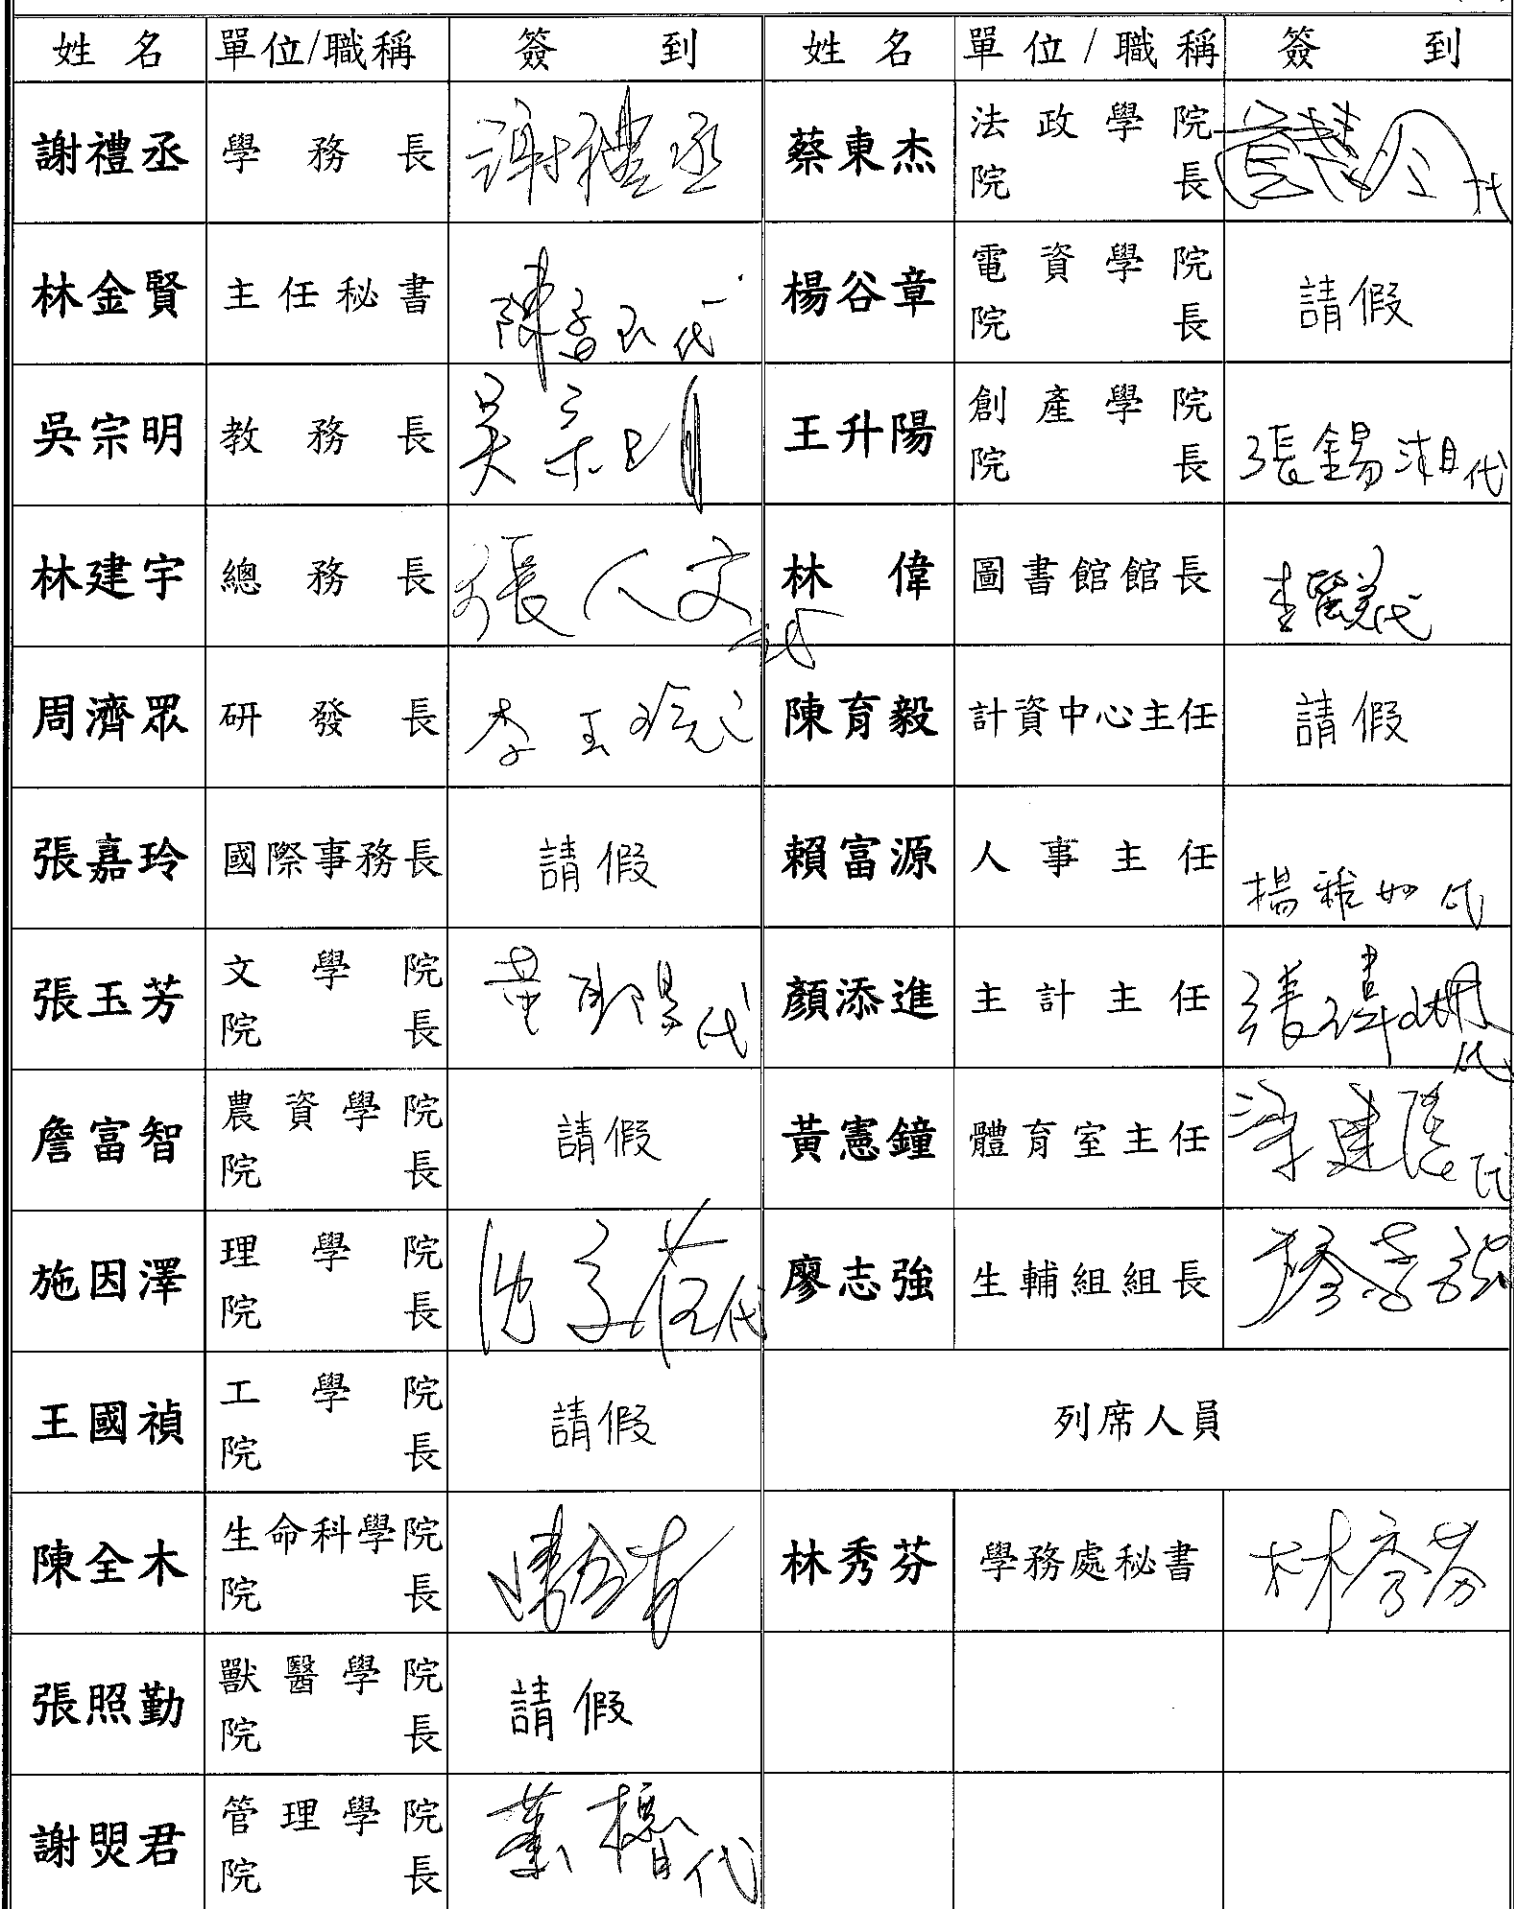 姓名 單位/職稱 簽到 姓名 單位/職稱 簽到
謝禮丞 學務長 謝禮丞 蔡東杰 法政學院院長 代
林金賢 主任秘書 代 楊谷章 電資學院院長 請假
吳宗明 教務長 吳宗明 王升陽 創產學院院長 張錫湘代
林建宇 總務長 張人文代 林偉 圖書館館長 代
周濟眾 研發長 李玉琬 陳育毅 計資中心主任 請假
張嘉玲 國際事務長 請假 賴富源 人事主任 楊雅如代
張玉芳 文學院院長 黃 代 顏添進 主計主任 張 代
詹富智 農資學院院長 請假 黃憲鐘 體育室主任 代
施因澤 理學院院長 代 廖志強 生輔組組長 廖志強
王國禎 工學院院長 請假 列席人員
陳全木 生命科學院院長 陳全木 林秀芬 學務處秘書 林秀芬
張照勤 獸醫學院院長 請假
謝焸君 管理學院院長 代